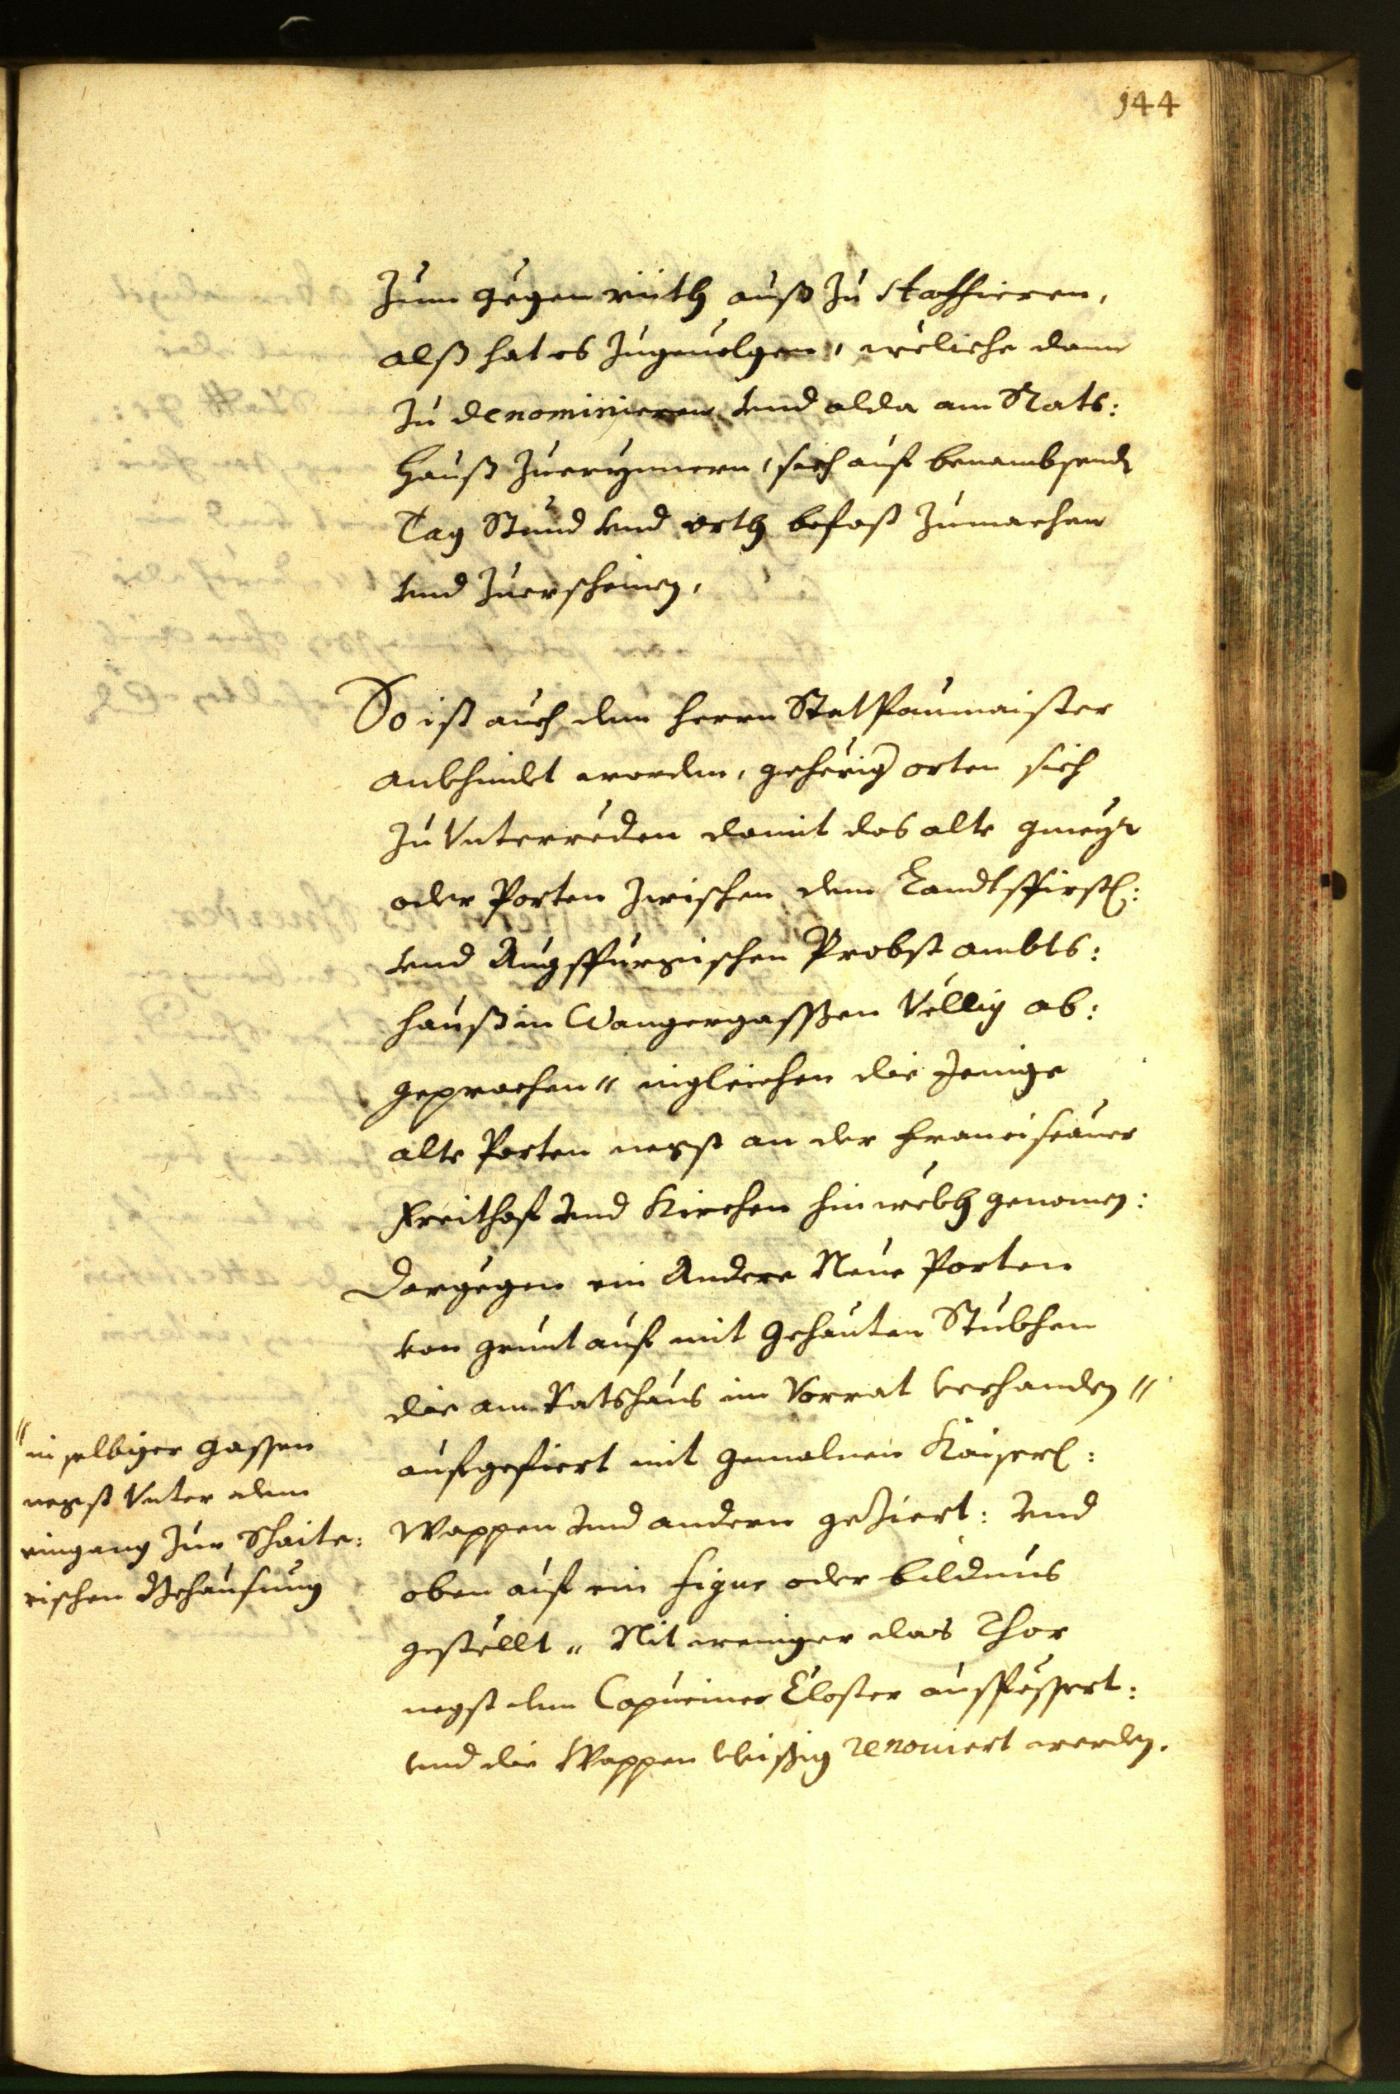 144
zum gegen rüth auß zu staffieren,
alß hat es zugeuolgen, weliche dann
zu denominieren vnd alda am Rats:
Hauß zuerynnern, sich auf benambsende
Tag Stund vnd orth befast zumachen
vnd zuerscheinen,
So ist auch dem herrn Stat Paumaister
worden, gehörig orten sich
zu Vnterreden damit das alte gmeyr
oder Porten zwischen dem Landtsfirstl:
vnd Augspurgischen Probst ambts:
hauß in Wangergasßen Völlig ab:
geprochen " ingleichen die Jenige
alte Porten negst an der Franciscaner
Freithof vnd Kirchen hinwekh genomen:
Dargegen ein Andere Neue Porten
von grunt auf mit gehauten Stukhen
die am Ratshaus im Vorrat verhanden "
aufgefiert mit gemalnen Kaiserl:
Wappen vnd andern geziert: vnd
oben auf ein figur oder bildnus
gestellt " Nit weniger das Thor
negst dem Capuciner Closter auspessert:
vnd die Wappen vleissig renouiert werden.
" in selbiger gassen
negst Vnter dem
eingang zur
rischen Behausung